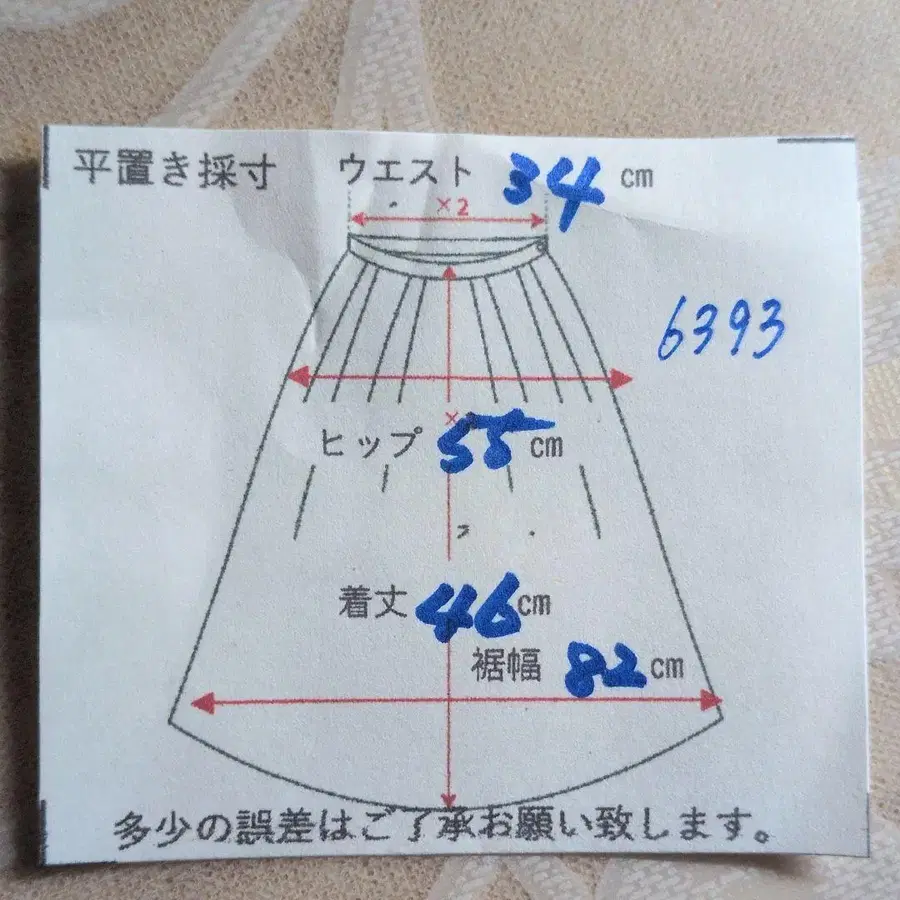 平置き採寸 ウエスト 34 cm
×2
6393
×
ヒップ 55 cm
着丈 46 cm
裾幅 82 cm
多少の誤差はご了承お願い致します。